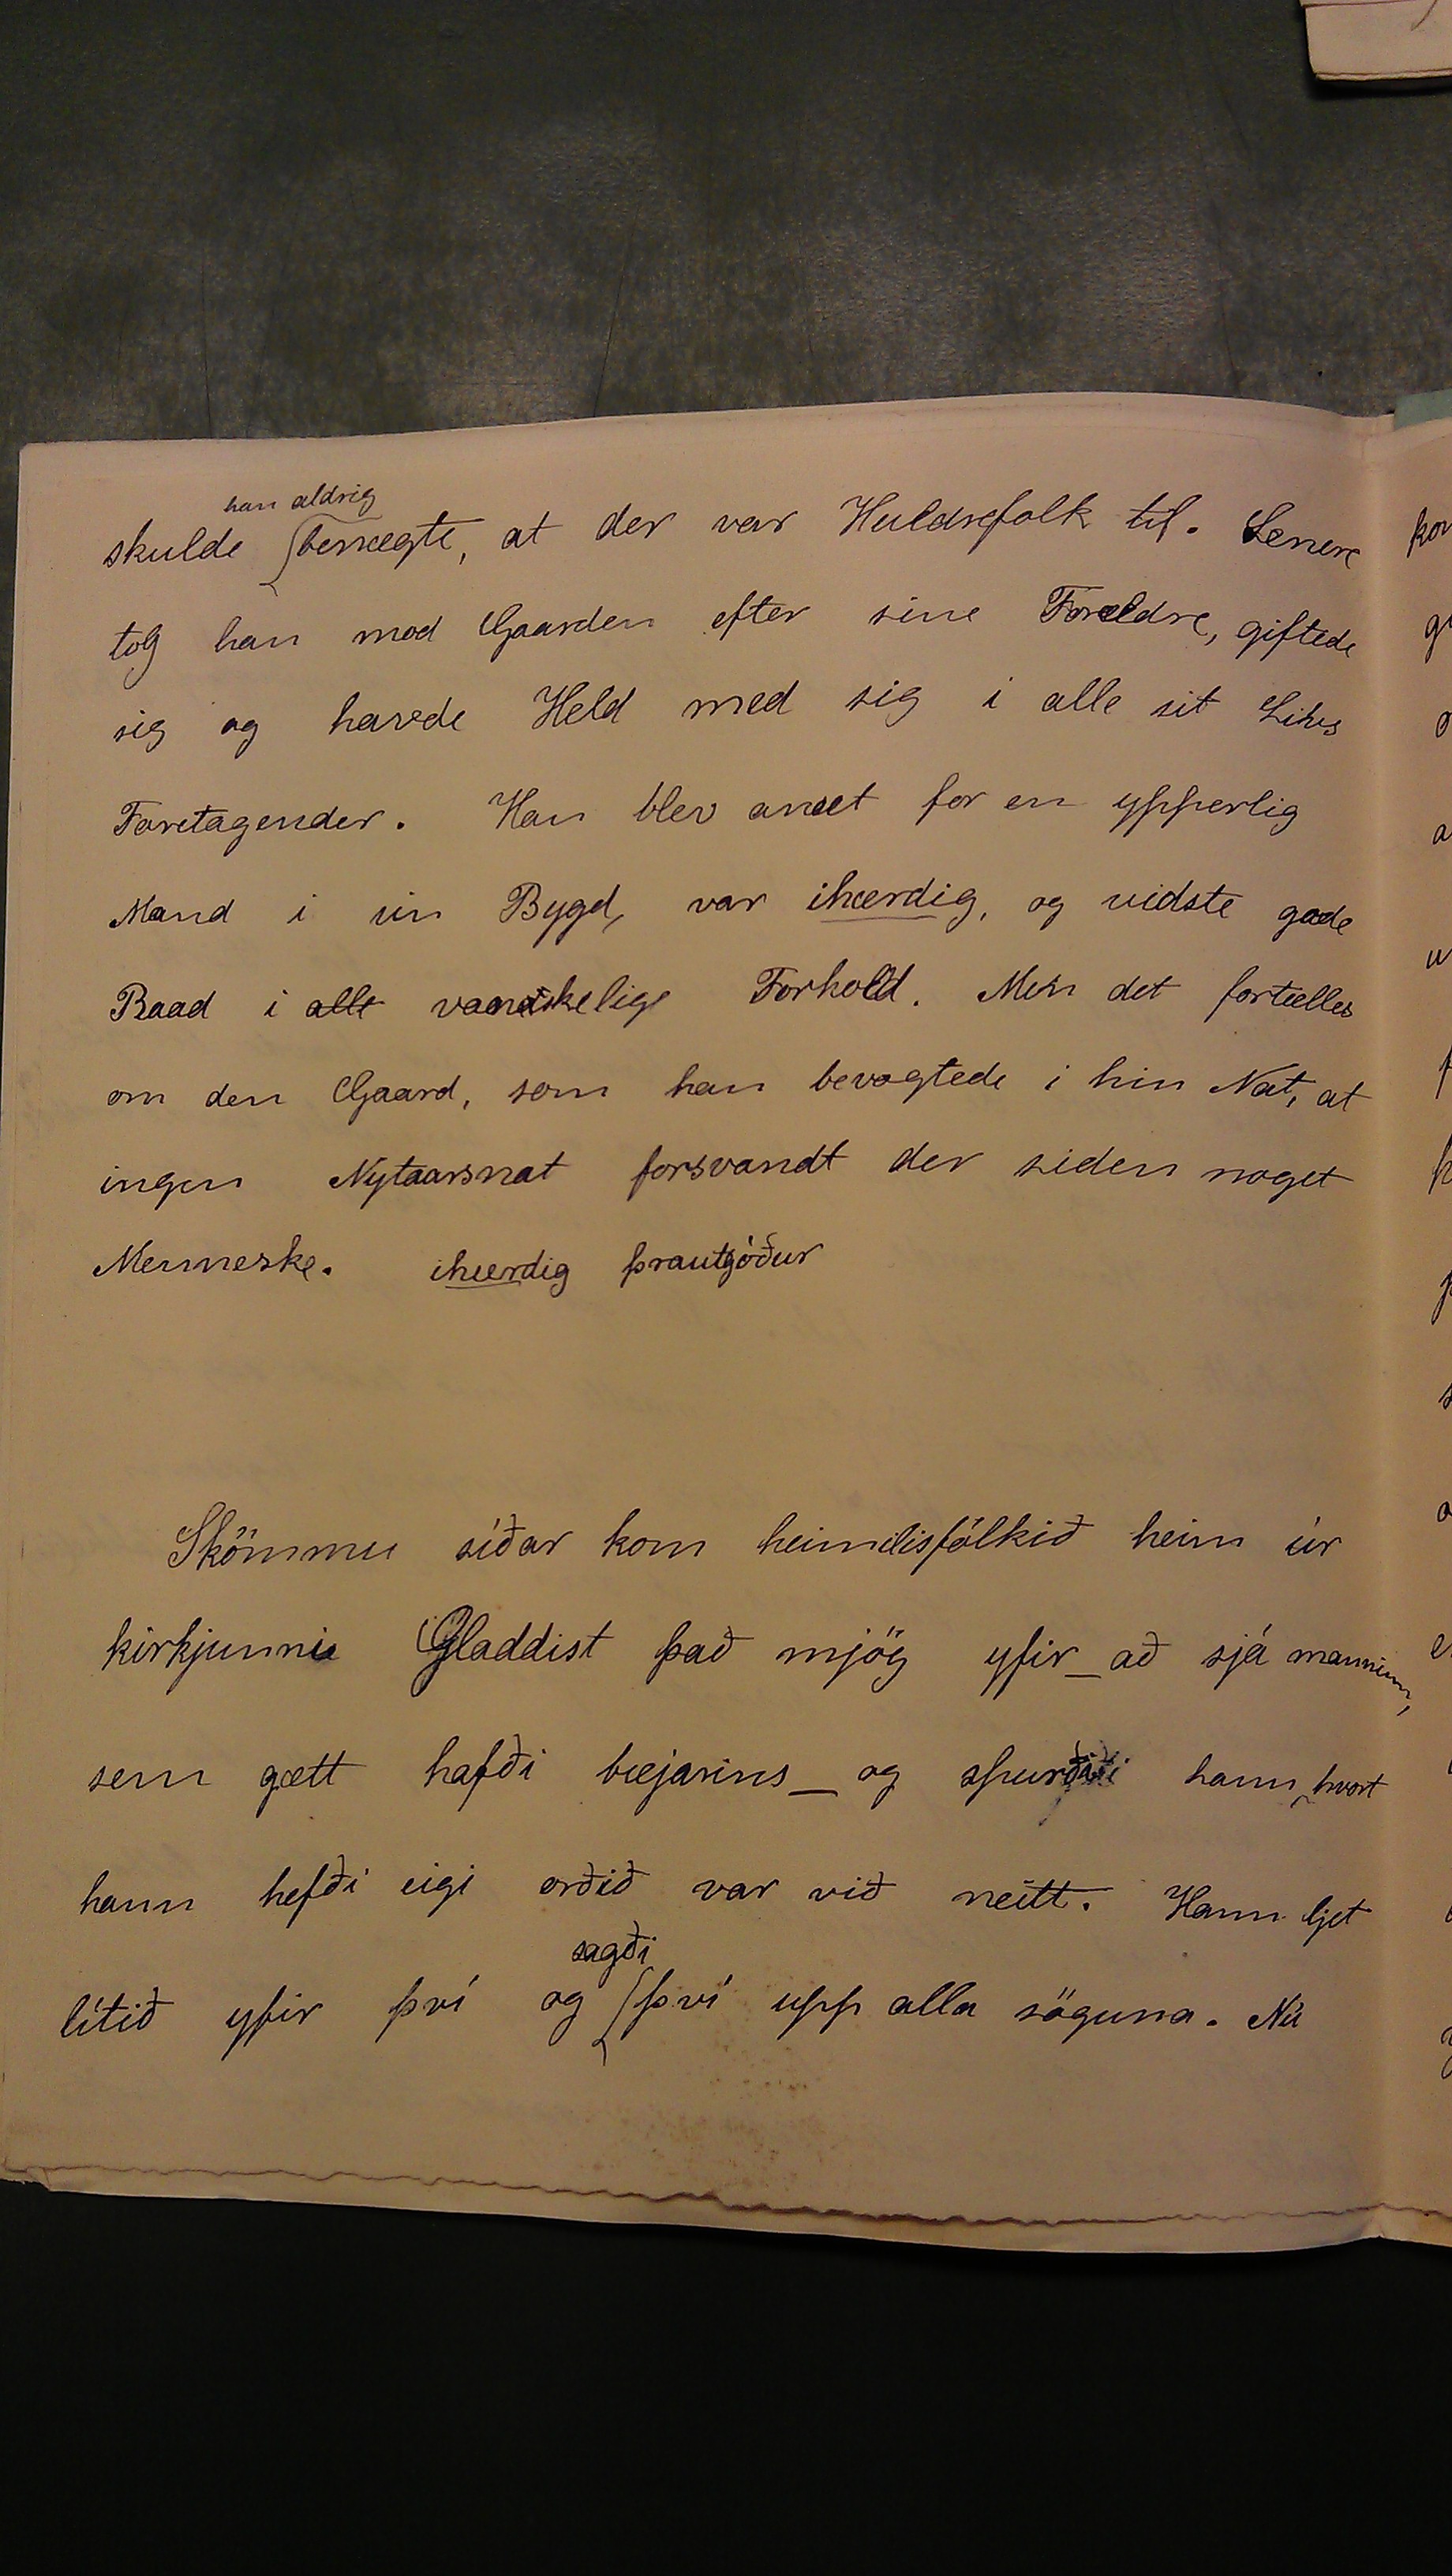 han aldrig
skulde benægte, at der var Huldrefolk til. Senere
tog han mod Gaarden efter sine Forældre, giftede
sig og havde Held med sig i alle sit Livs
Foretagender. Han blev anset for en ypperlig
Mand i sin Bygd, var ihærdig, og vidste gode
Raad i alle vanskelige Forhold. Men det fortælles
om den Gaard, som han bevogtede i hin Nat, at
ingen Nytaarsnat forsvandt der siden noget
Menneske. ihærdig þrautgóður
Skömmu síðar kom heimilisfólkið heim úr
kirkjunni Gladdist það mjög yfir_að sjá manninn,
sem gætt hafði bæjarins_og hann hvort
hann hefði eigi orðið var við neitt. Hann ljet
sagði
lítið yfir því og því upp alla söguna. Nú